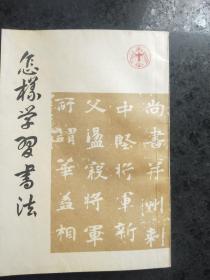 怎样学习书法
尚书并州刺
中坚将军新
父温视将军
所谓华盖相